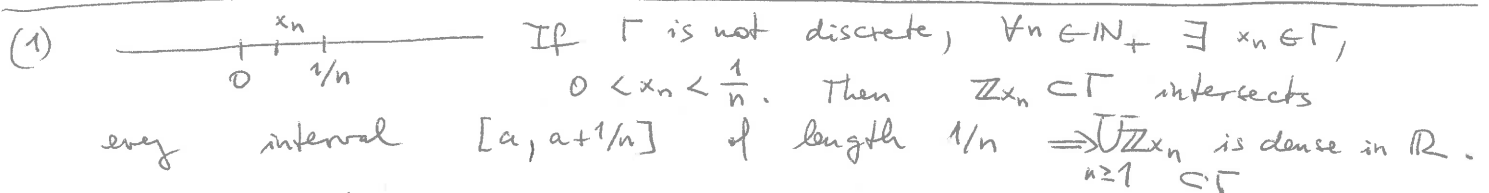 (1) 0 xₙ 1/n If Γ is not discrete, ∀n ∈ ℕ₊ ∃ xₙ ∈ Γ,
0 < xₙ < 1/n. Then ℤxₙ ⊂ Γ intersects
every interval [a, a+1/n] of length 1/n ⟹ ⋃_{n≥1} ℤxₙ is dense in ℝ.
⊂ Γ